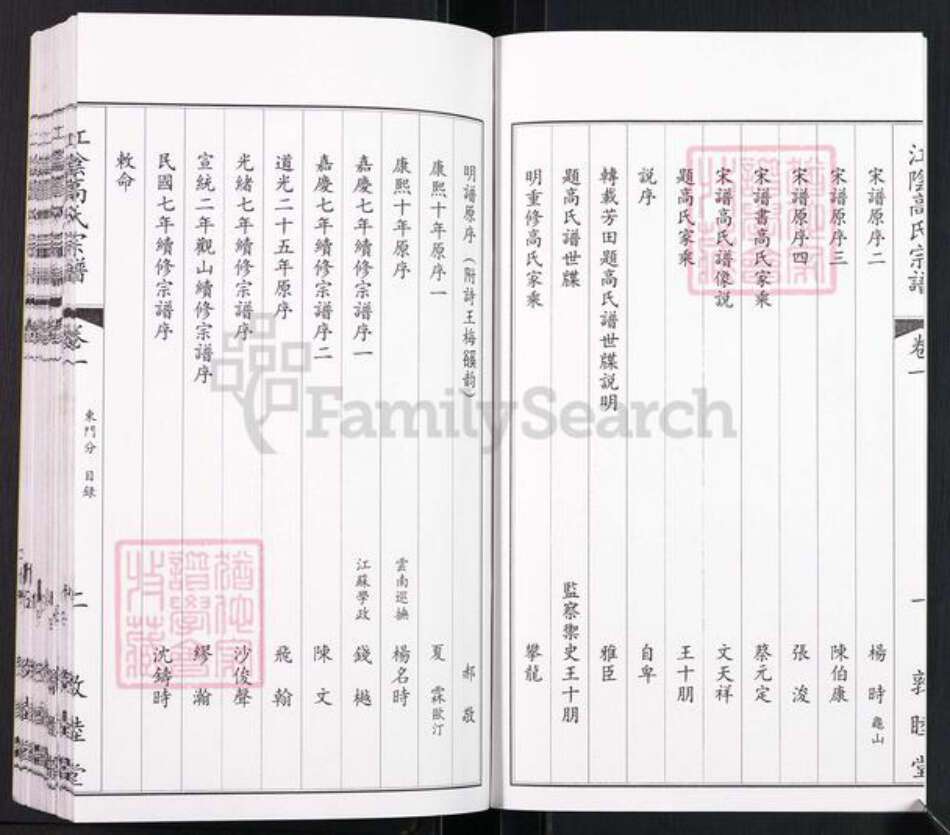 江陰高氏宗譜 卷一 一 敦睦堂
宋譜原序二 楊時 龜山
宋譜原序三 陳伯康
宋譜原序四 張浚
宋譜書高氏家乘 蔡元定
宋譜高氏譜像説 文天祥
題高氏家乘 王十朋
説序 自牟
轉載芳田題高氏譜世牒説明 雅臣
題高氏譜世牒 監察禦史王十朋
明重修高氏家乘 攀龍
明譜原序（附詩王梅韻） 郝敬
康熙十年原序一 夏霖 歐汀
康熙十年原序 雲南巡撫 楊名時
嘉慶七年續修宗譜序一 江蘇學政 錢樾
嘉慶七年續修宗譜序二 陳文
道光二十五年原序 飛翰
光緒七年續修宗譜序 沙俊聲
宣統二年觀山續修宗譜序 繆瀚
民國七年續修宗譜序 沈鑄時
敕命
江陰高氏宗譜 卷一 東門分 目錄 二 敦睦堂
FamilySearch